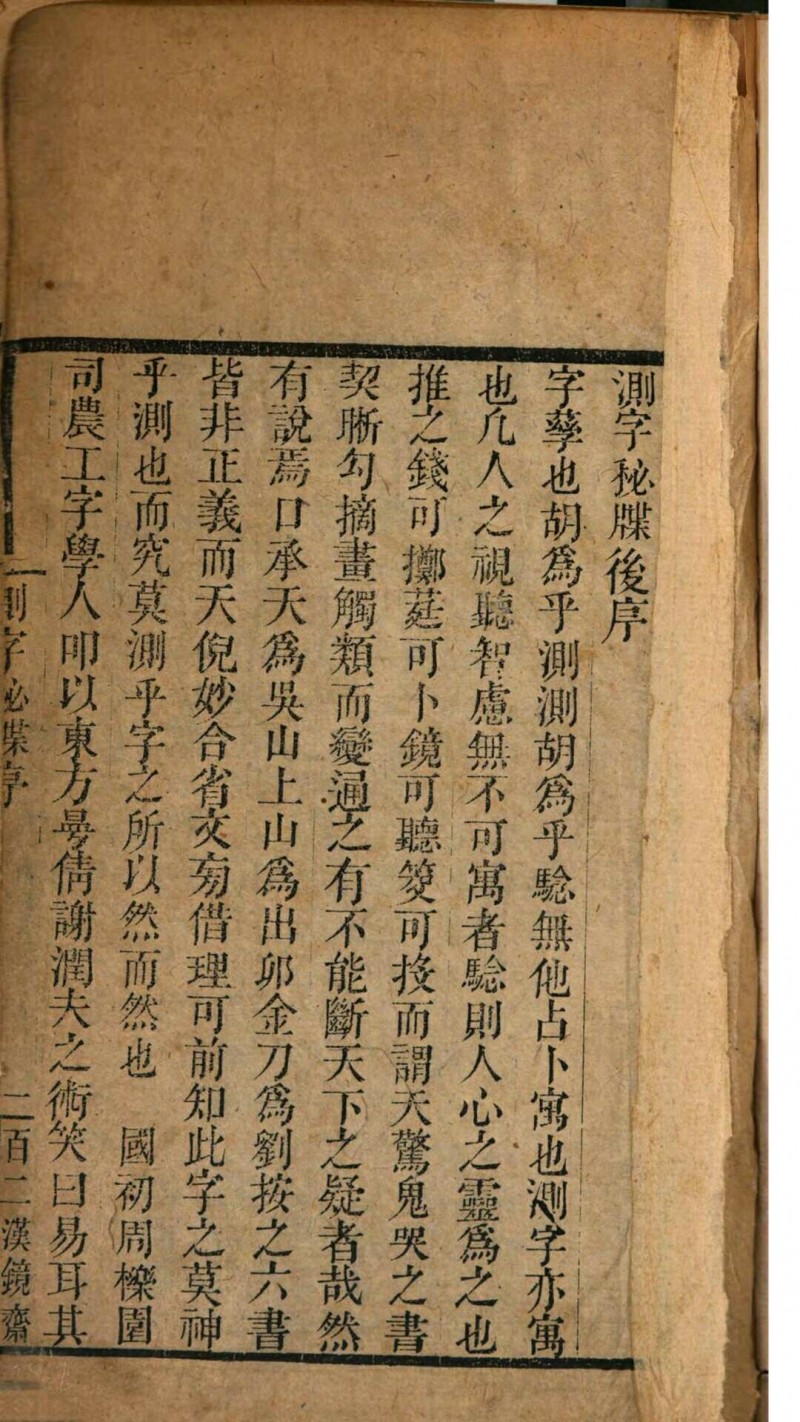 測字秘牒後序
字孳也胡爲乎測測胡爲乎騐無他占卜寓也測字亦寓
也凡人之視聽智慮無不可寓者騐則人心之靈爲之也
推之錢可擲莛可卜鏡可聽筊可掷而謂天驚鬼哭之書
契晰勾摘畫觸類而變通之有不能斷天下之疑者哉然
有說焉口承天爲吳山上山爲出卯金刀爲劉按之六書
皆非正義而天倪妙合省文匄借理可前知此字之莫神
乎測也而究莫測乎字之所以然而然也　國初周櫟園
司農工字學人叩以東方曼倩謝潤夫之術笑曰易耳其
測字秘牒序　二百二漢鏡齋